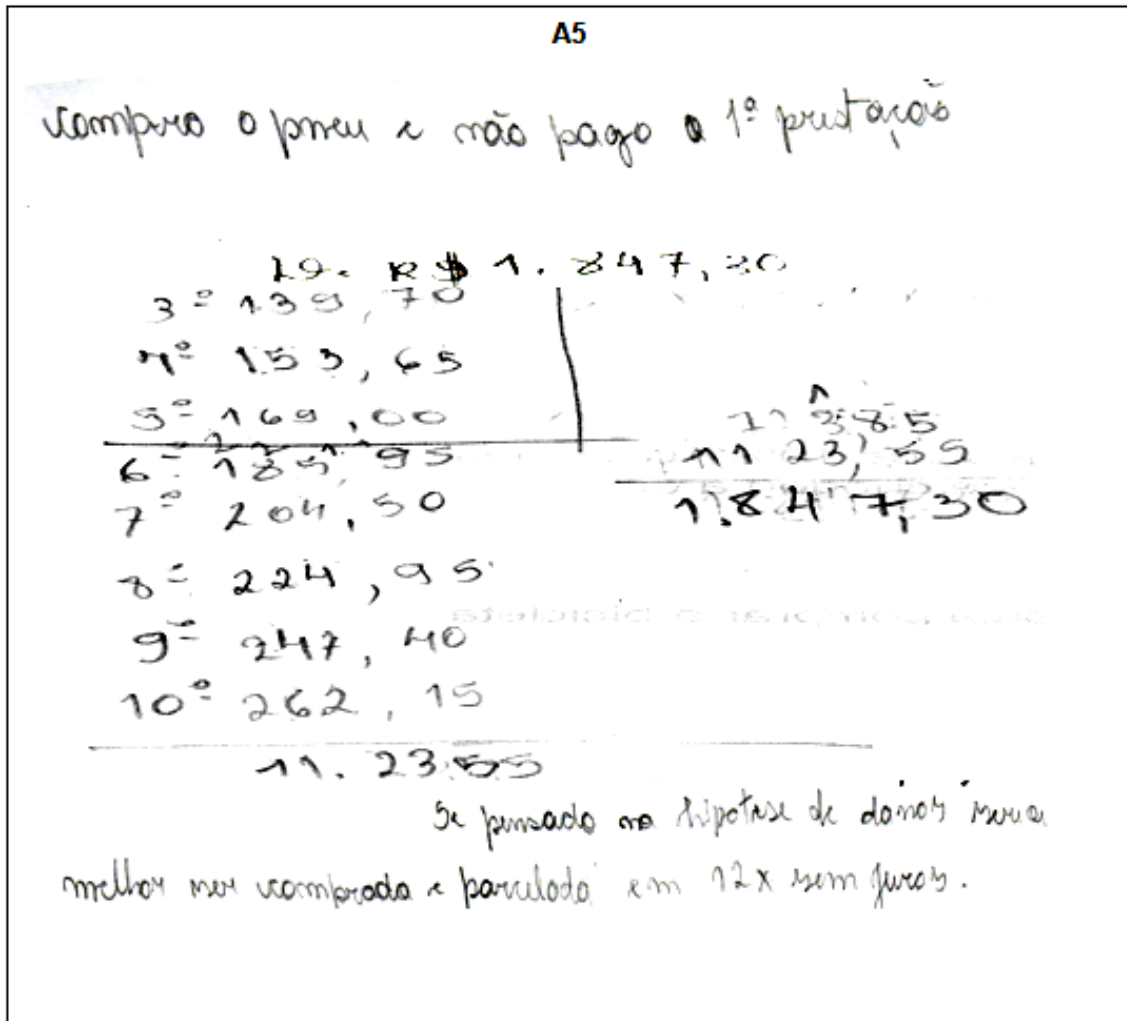 A5
compro o pneu e não pago a 1º prestação
R$ 1.847,30
3º 139,70
4º 153,65
5º 169,00
6º 185,95
7º 204,50
8º 224,95
9º 247,40
10º 262,15
11.2355
1123,55
1.847,30
Se pensado na hipotese de danos seria
melhor ser comprada e parcelada em 12x sem juros.